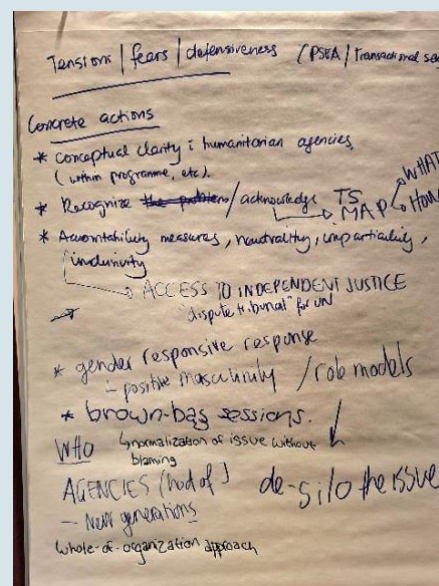 Tensions / fears / defensiveness (PSEA / Transactional se
Concrete actions
* Conceptual clarity : humanitarian agencies,
(within programme, etc).
* Recognize the problem / acknowledge TS
MAP
WHAT
HOW
* Accountability measures, neutrality, impartiality,
inclusivity
→ ACCESS TO INDEPENDENT JUSTICE
"dispute tribunal" for UN
* gender responsive response
- positive masculinity / role models
* brown-bag sessions.
↳ normalization of issue without
blaming
WHO
AGENCIES (hod of) de-silo the issue
- New generations
Whole-of-organization approach